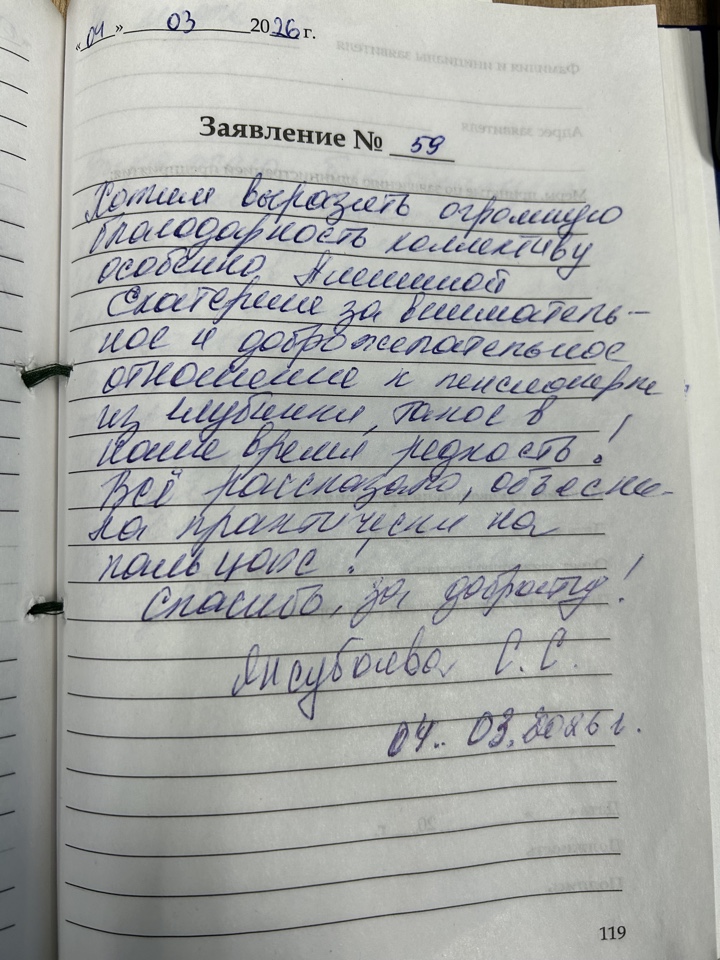 « 04 » 03 2026 г.
Заявление № 59
Хотим выразить огромную
благодарность коллективу
особенно
Екатерине за вниматель-
ное и доброжелательное
отношение к пенсионерке
из глубинки, такое в
наше время редкость!
Всё рассказала, объясни-
ла практически на
пальцах!
Спасибо, за доброту!
Янсубаева С. С.
04. 03. 2026 г.
119